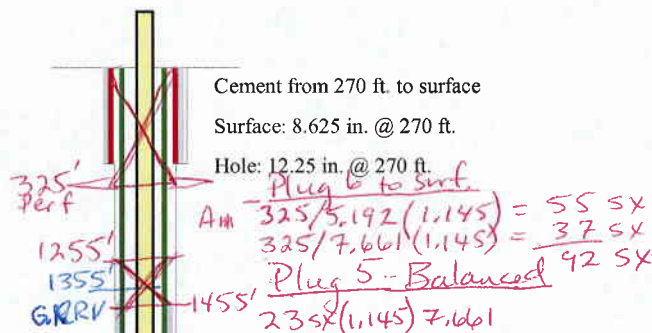 Cement from 270 ft. to surface
Surface: 8.625 in. @ 270 ft.
Hole: 12.25 in. @ 270 ft.
325'
Perf
Plug 6 to Surf.
325/5.192(1.145) = 55 sx
325/7.661(1.145) = 37 sx
92 sx
1255'
1355'
1455'
Plug 5 - Balanced
23sx(1.145)7.661